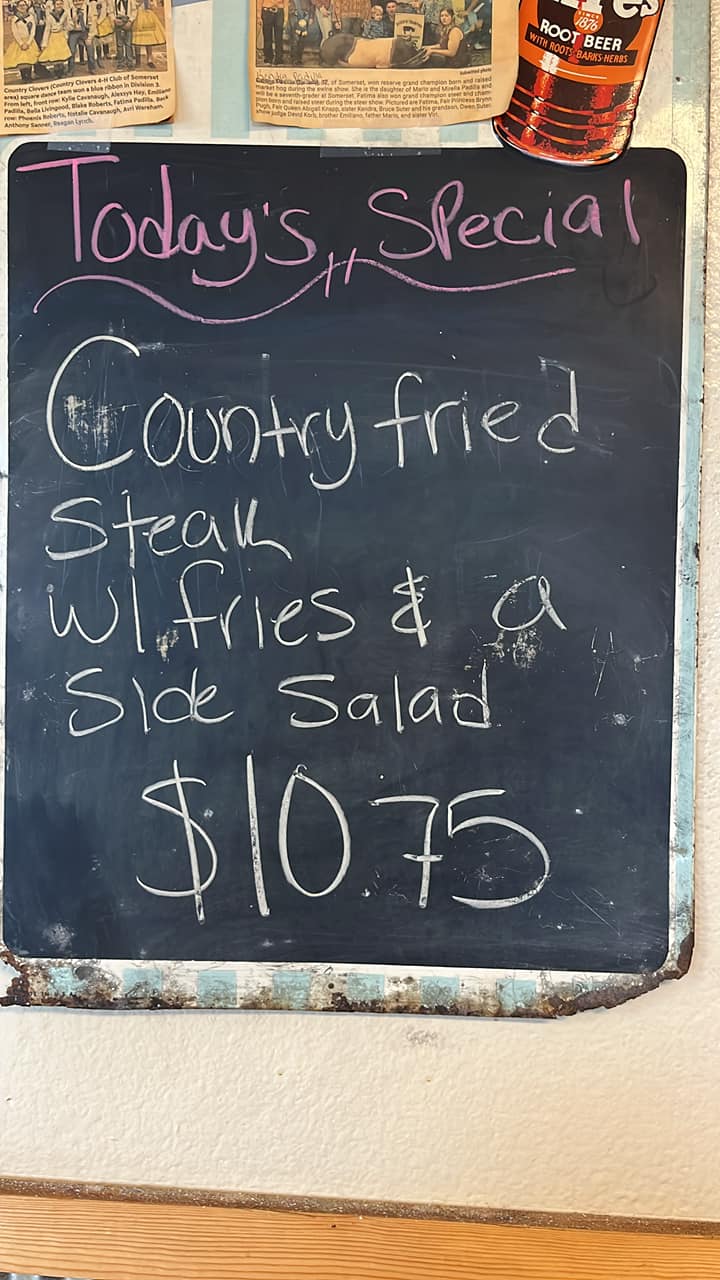 Country Clovers (Country Clovers 4-H Club of Somerset
area) square dance team won a blue ribbon in Division 3.
From left, front row: Kylie Cavanaugh, Alexsys Hay, Emiliano
Padilla, Bella Livengood, Blake Roberts, Fatima Padilla. Back
row: Phoenix Roberts, Natalie Cavanaugh, Avri Wareham,
Anthony Sanner, Reagan Lynch.
Submitted photo
of Somerset, won reserve grand champion born and raised
market hog during the swine show. She is the daughter of Mario and Mirella Padilla and
will be a seventh-grader at Somerset. Fatima also won grand champion steer and cham-
pion born and raised steer during the steer show. Pictured are Fatima, Fair Princess Brynn
Pugh, Fair Queen Abigail Knapp, sister Kendra, Bruce Suter and his grandson, Owen Suter,
show judge David Korb, brother Emiliano, father Mario, and sister Viri.
SINCE
1876
ROOT BEER
WITH ROOTS·BARKS·HERBS
Today's Special
Country fried
Steak
w/ fries & a
Side Salad
$10.75